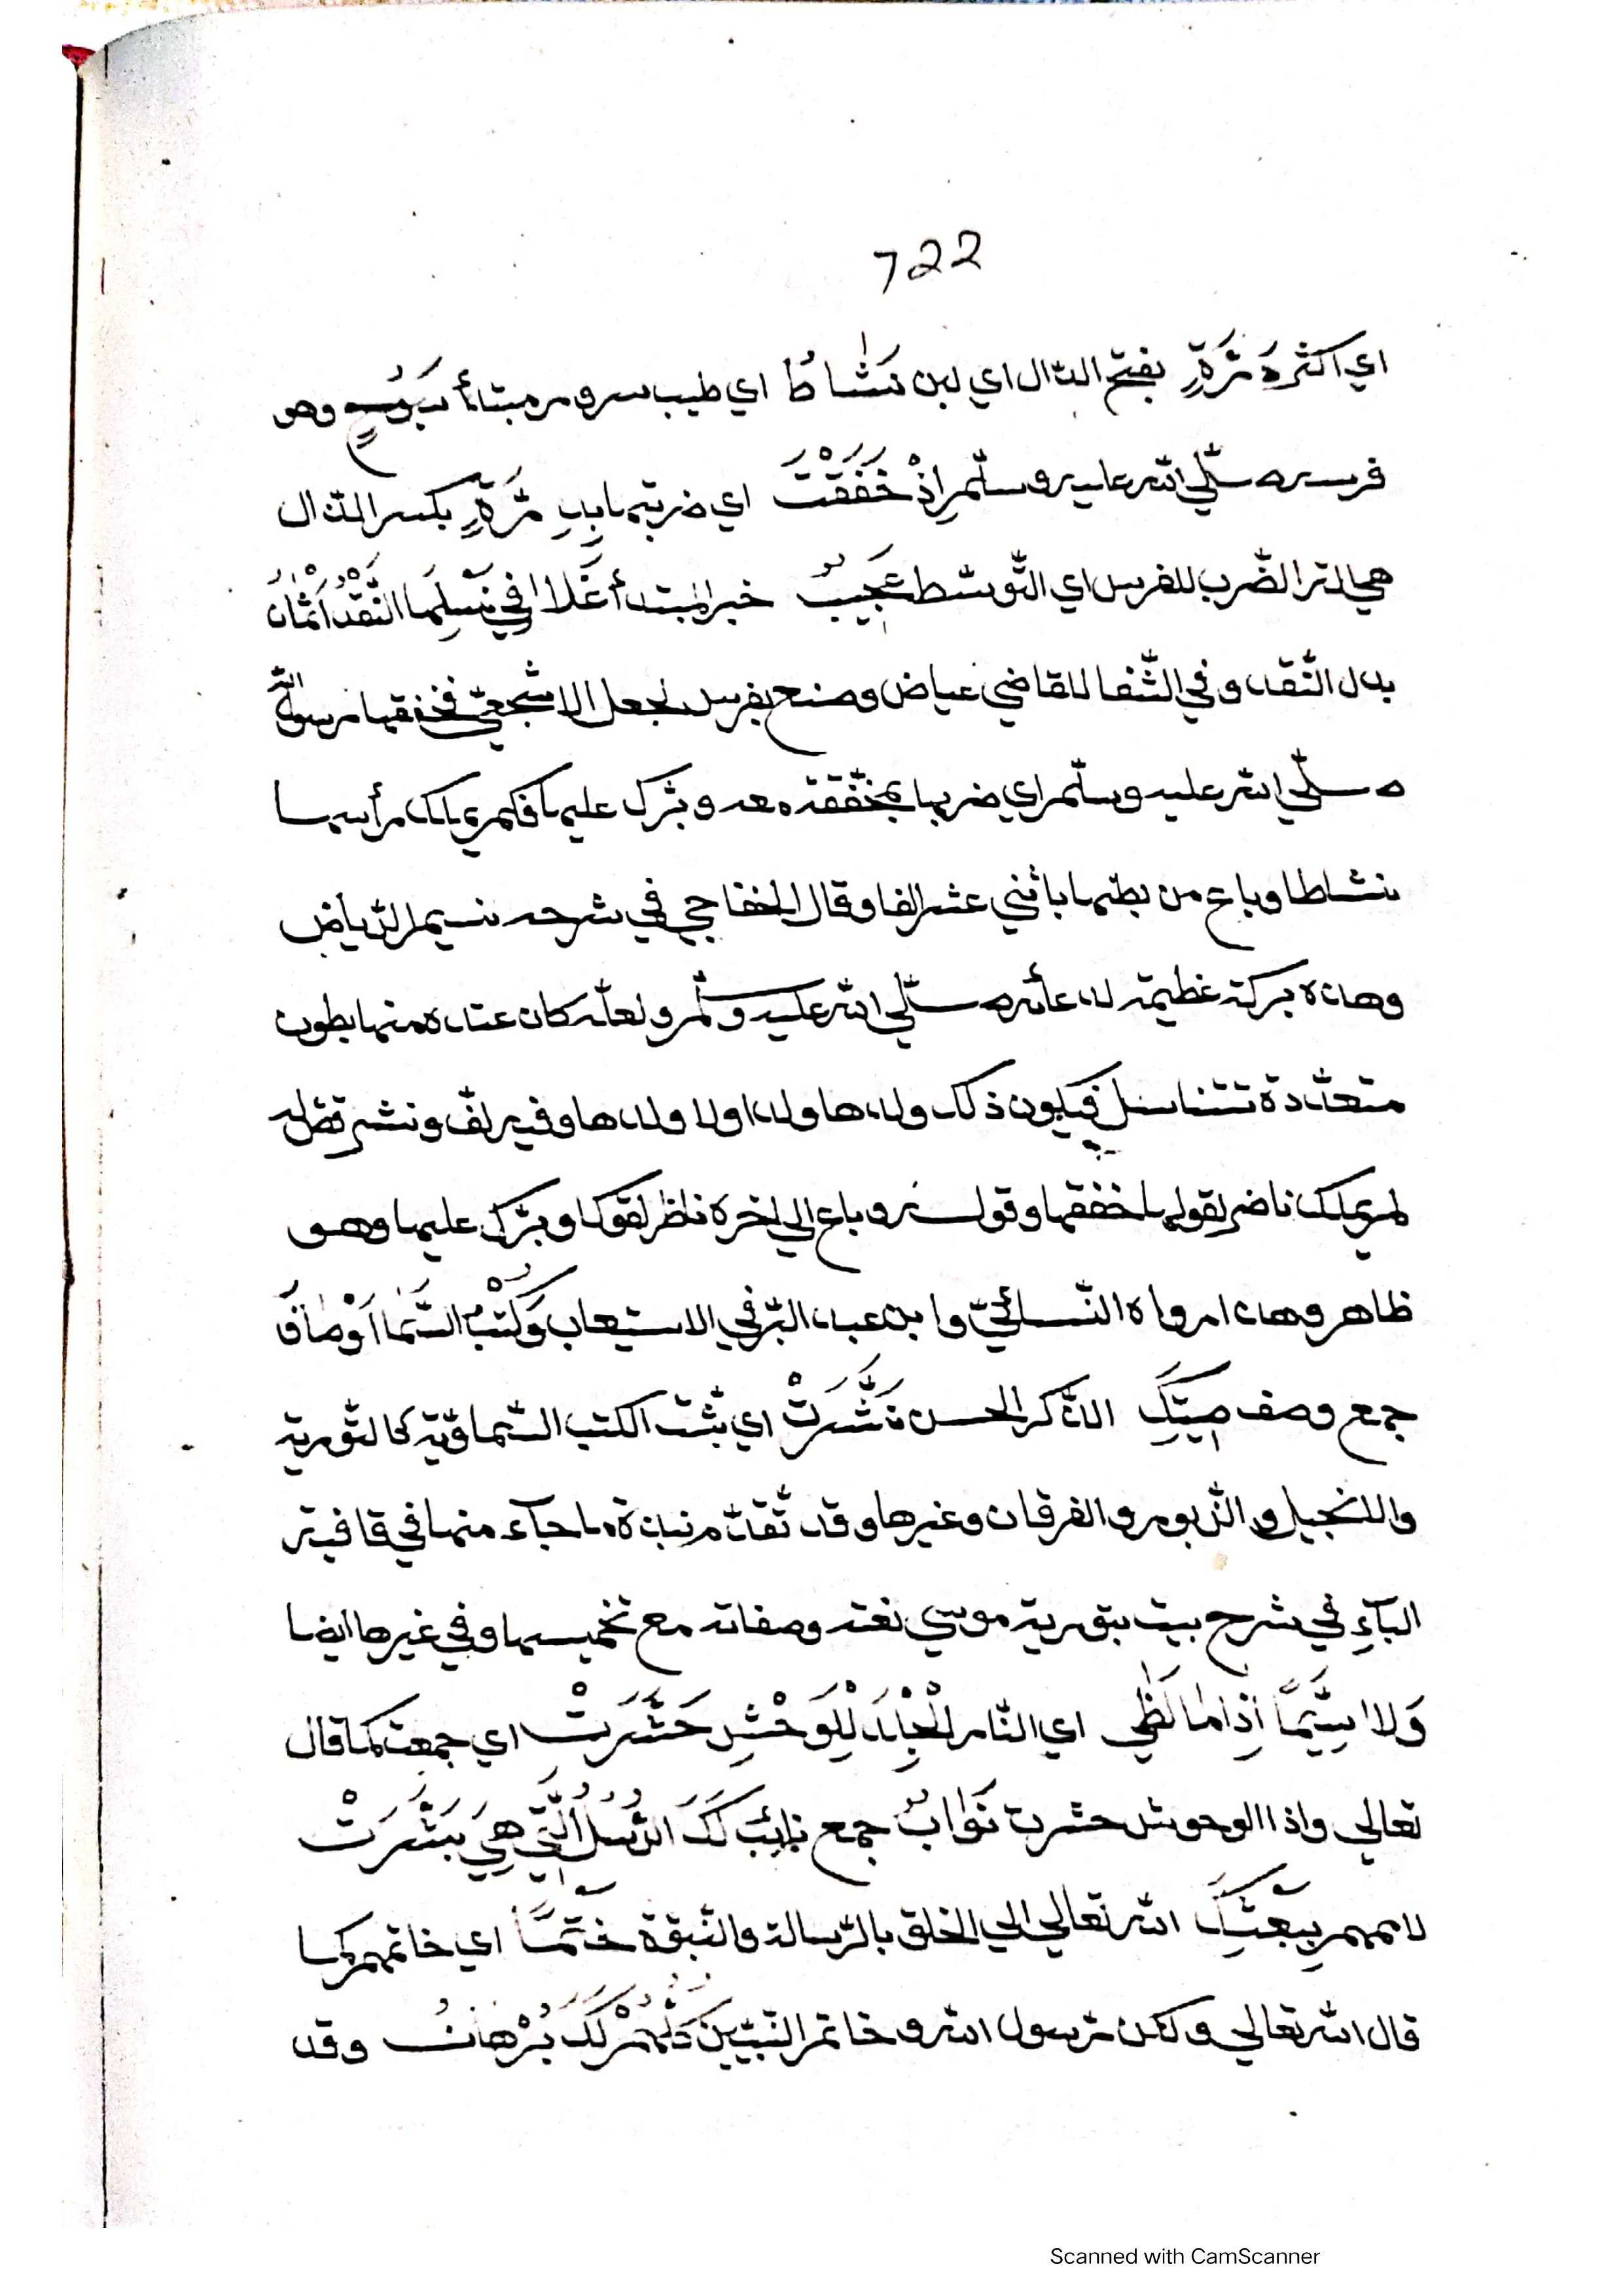 722
اي اكثره دَرَّةٍ بفتح الدّال اي لبن نَشَاطُ اي طيب سرور مبتدأ سَبُوحٍ وهو
فرسه صلّي الله عليه وسلّم اِذْ خَفَقْتَ اي ضربتها بِدِرَّةٍ بكسر الدّال
هي الة الضّرب للفرس اي التّوسّط عَجِيبٌ خبر المبتدأ غَلا في نَسْلِهَا النَّقْدُ اَثْمَانُ
بدل النّقد وفي الشّفا للقاضي عياض وصنع بفرس لجعل الاشجعيّ فخفقها رسول الله
صلّي الله عليه وسلّم اي ضربها بمخفّقة معه وبرّك عليها فلم يملك رأسها
نشاطا وباع من بطنها باثني عشر الفا وقال الخفاجي في شرحه نسيم الرّياض
وهذه بركة عظيمة لدعائه صلّي الله عليه وسلّم ولعلّه كان عنده منها بطون
متعدّدة تتناسل فيكون ذلك ولدها ولد اولاد ولدها وفيه لفّ ونشر فقوله
لم يملك ناضر لقوله خفقها وقوله وباع الي اخره ناظر لقوله وبرّك عليها وهو
ظاهر وهذا رواه النّسائيّ وابن عبد البرّ في الاستيعاب وَكُتْبُ السَّمَا اَوْصَافَ
جمع وصف صِيتِكَ الذّكر الحسن نَشَّرَتْ اي بثّت الكتب السّماويّة كالتّورية
والانجيل والزّبور والفرقان وغيرها وقد تقدّم نبذة ما جآء منها في قافية
البآءِ في شرح بيت بتورية موسي نعته وصفاته مع تخميسها وفي غيرها ايضا
وَلا سِيَّمَا اِذَا مَا لَظَي اي النّار الْجِلْدَ لِلْوَحْشِ حَشَّرَتْ اي جمعت كما قال
تعالي واذا الوحوش حشرت نَوَابُ جمع نائب لَكَ الرُّسُلُ الَّتِي هِيَ بَشَّرَتْ
لاممهم بِبَعْثِكَ الله تعالي الي الخلق بالرّسالة والنّبوّة خَتْمًا اي خاتمهم كما
قال الله تعالي ولكن رسول الله وخاتم النّبيّين كُلُّهُمْ لَكَ بُرْهَانُ وقد
Scanned with CamScanner